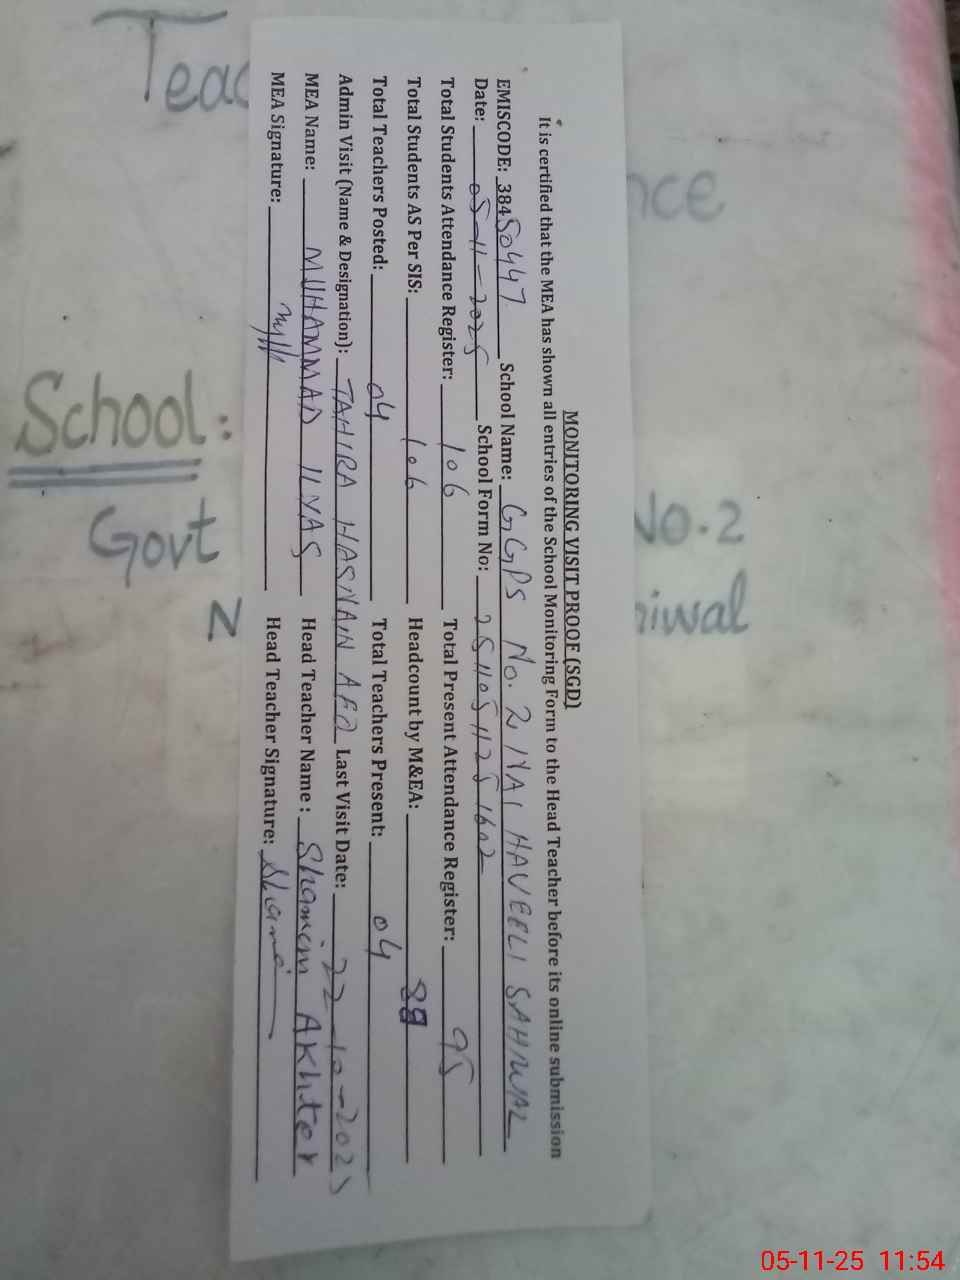 MONITORING VISIT PROOF (SGD)
It is certified that the MEA has shown all entries of the School Monitoring Form to the Head Teacher before its online submission
EMISCODE: 38450447 School Name: GGPS No. 2 NAI HAVEELI SAHIWAL
Date: 05-11-2025 School Form No: 25110511251602
Total Students Attendance Register: 106 Total Present Attendance Register: 95
Total Students AS Per SIS: 106 Headcount by M&EA:
Total Teachers Posted: 04 Total Teachers Present: 04
Admin Visit (Name & Designation): TAHIRA HASNAIN AEO Last Visit Date: 22-10-2025
MEA Name: MUHAMMAD ILYAS Head Teacher Name : Shamim Akhter
MEA Signature: Head Teacher Signature:
Teac
nce
School:
Govt No.2
N hiwal
05-11-25 11:54